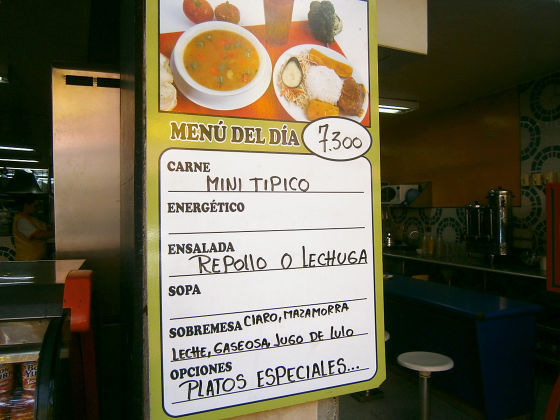 MENÚ DEL DÍA 7.300
CARNE
MINI TIPICO
ENERGÉTICO
ENSALADA
REPOllO O LECHUGA
SOPA
SOBREMESA CLARO, MAZAMORRA
LECHE, GASEOSA, JUGO DE lulo
OPCIONES
PLATOS ESPECIALES...